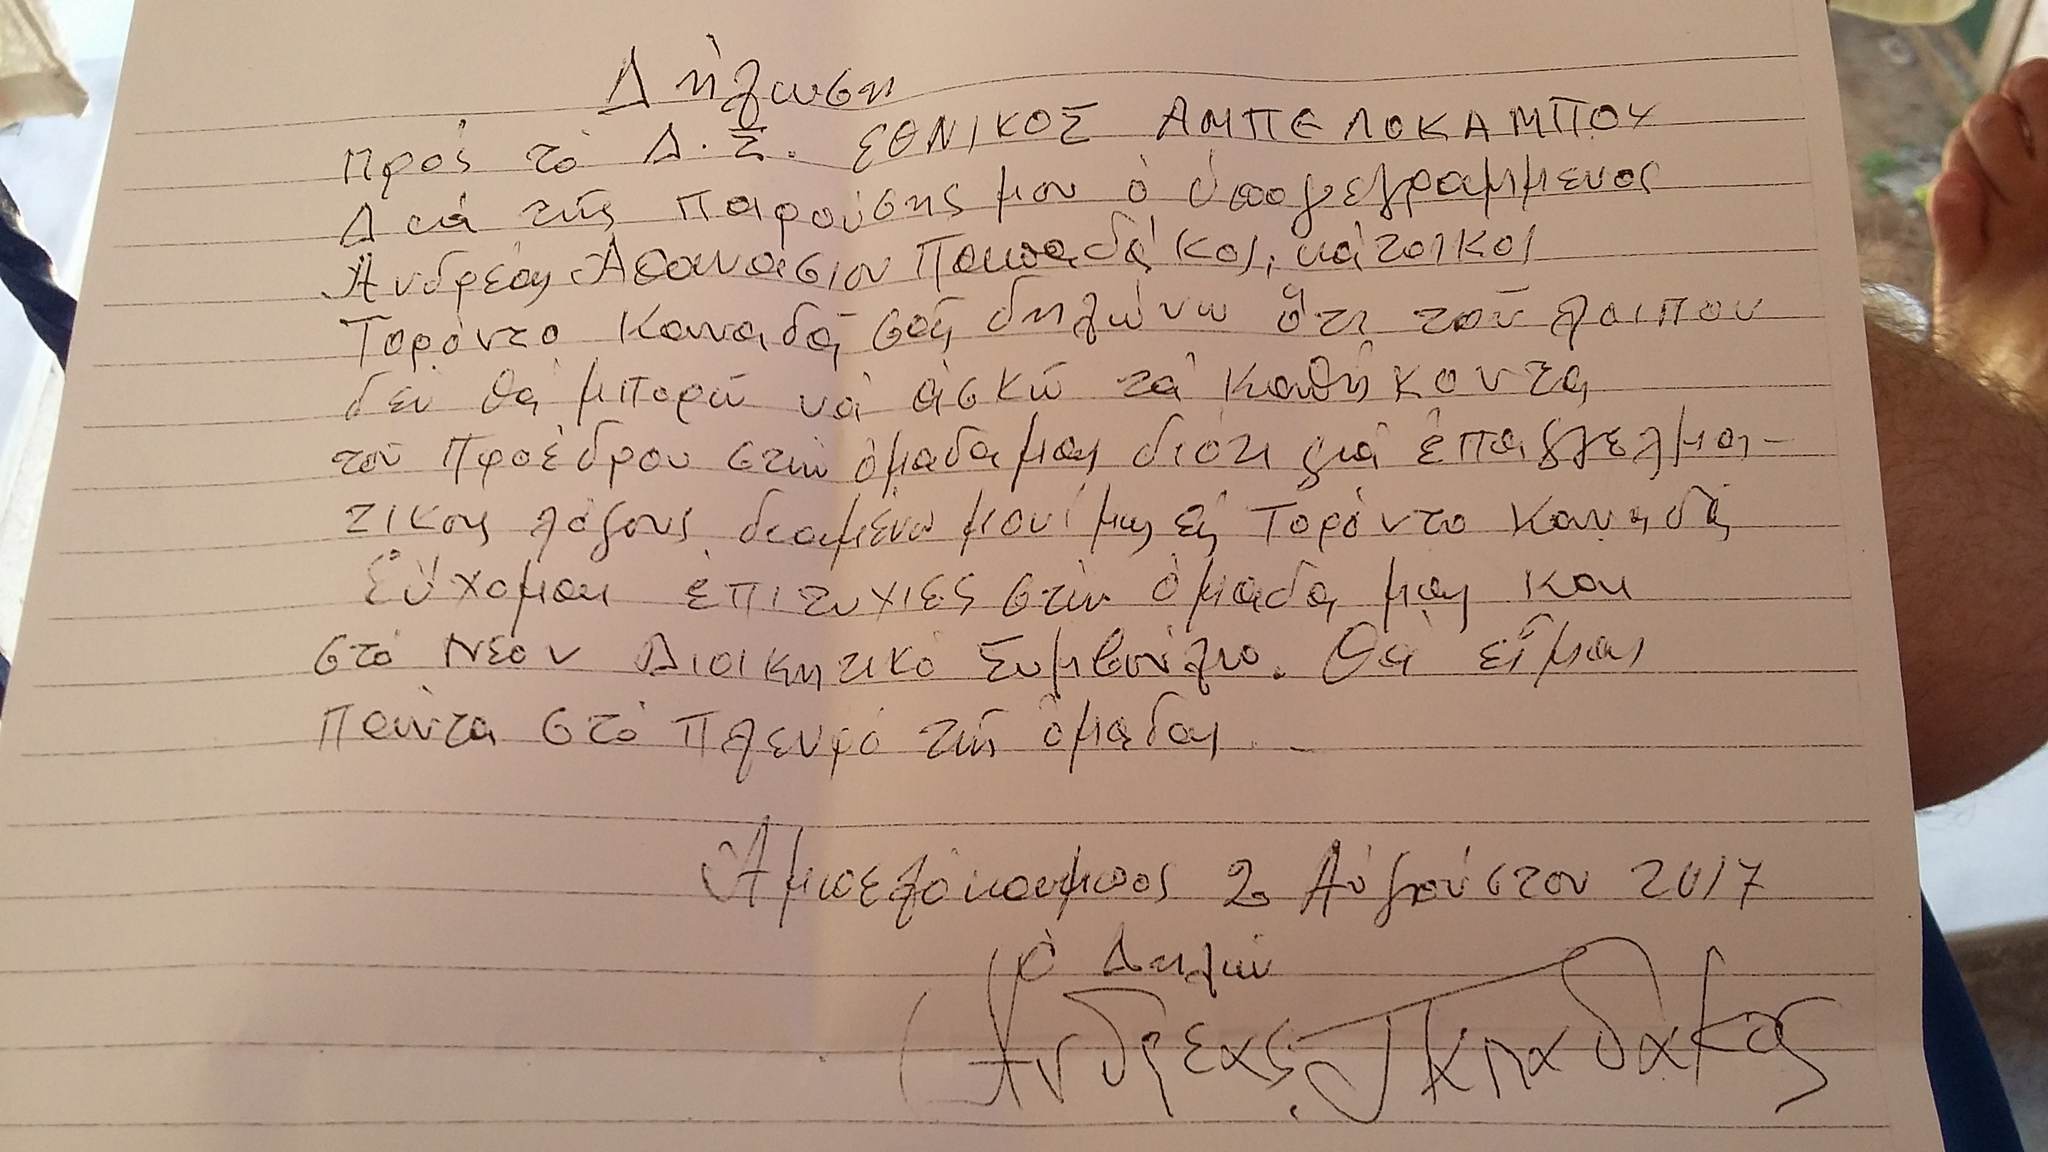 Δήλωση
Πρός τό Δ.Σ. ΕΘΝΙΚΟΣ ΑΜΠΕΛΟΚΑΜΠΟΥ
Διά τῆς παρούσης μου ὁ ὑπογεγραμμενος
Ἀνδρέας Αθανασίου Παπαδάκος, κάτοικος
Τορόντο Καναδᾶ σᾶς δηλώνω ὅτι τοῦ λοιπου
δέν θά μπορῶ νά ἀσκῶ τά καθήκοντα
τοῦ Προέδρου στήν ὁμαδα μας διότι γιά ἐπαγγελμα-
τικους λόγους διαμένω μονίμως εἰς Τορόντο Καναδᾶ
Εὔχομαι ἐπιτυχιες στήν ὁμαδα μας και
στό Νέον Διοικητικό Συμβούλιο. Θά εἶμαι
πάντα στό πλευρό τῆς ὁμαδας.
Ἀμπελόκαμπος 2 Αὐγούστου 2017
Ὁ Δηλῶν
Ανδρεας Παπαδακος